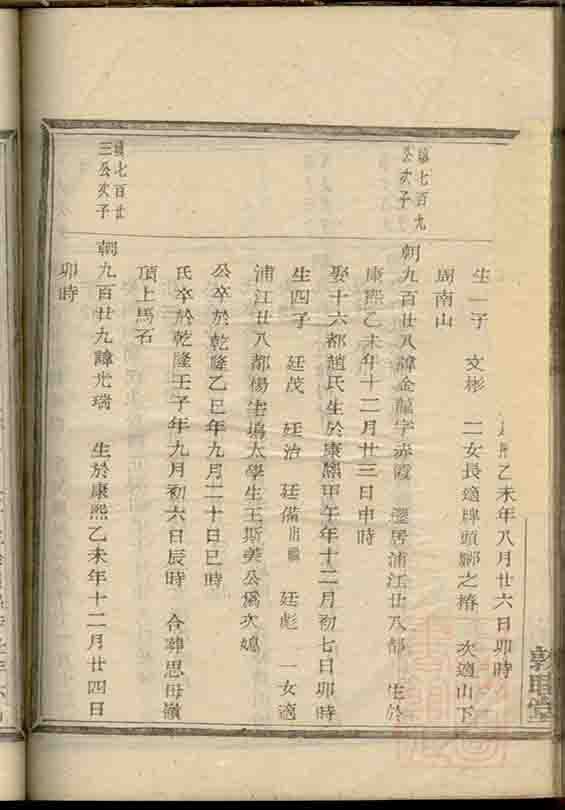 熙乙未年八月廿六日卯時
生一子　文彬　二女長適牌頭之椿　次適山下
周南山
鎮七百九
公次子
朝九百廿八諱金龍字赤霞　遷居浦江廿八都　生於
康熙乙未年十二月廿三日申時
娶十六都趙氏生於康熙甲午年十二月初七日卯時
生四子　廷茂　廷治　廷備出繼　廷彪　一女適
浦江廿八都楊宅塢太學生王斯美公為次媳
公卒於乾隆乙巳年九月二十日巳時
氏卒於乾隆壬子年九月初六日辰時　合葬思母嶺
頂上馬石
鎮七百廿
三公次子
朝九百廿九諱光瑞　生於康熙乙未年十二月廿四日
卯時
敦睦堂